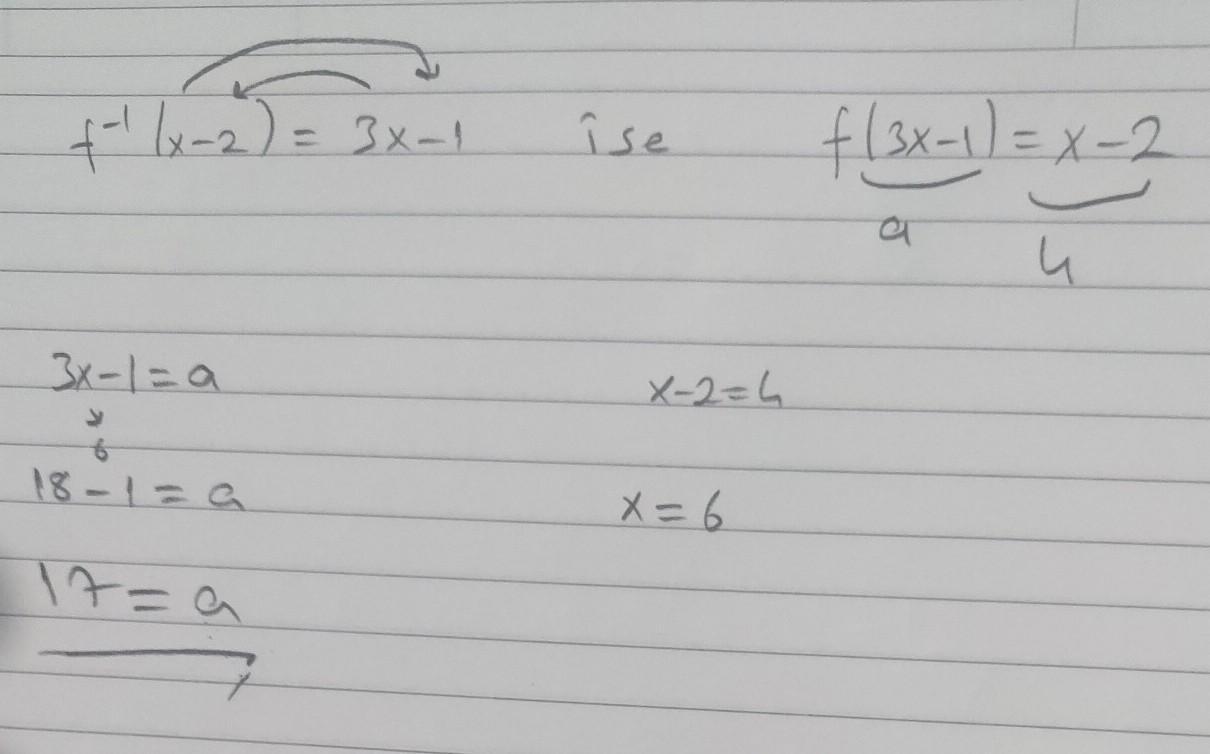 f⁻¹(x-2) = 3x-1 ise f(3x-1) = x-2
a 4
3x-1 = a x-2 = 4
6
18-1 = a x = 6
17 = a